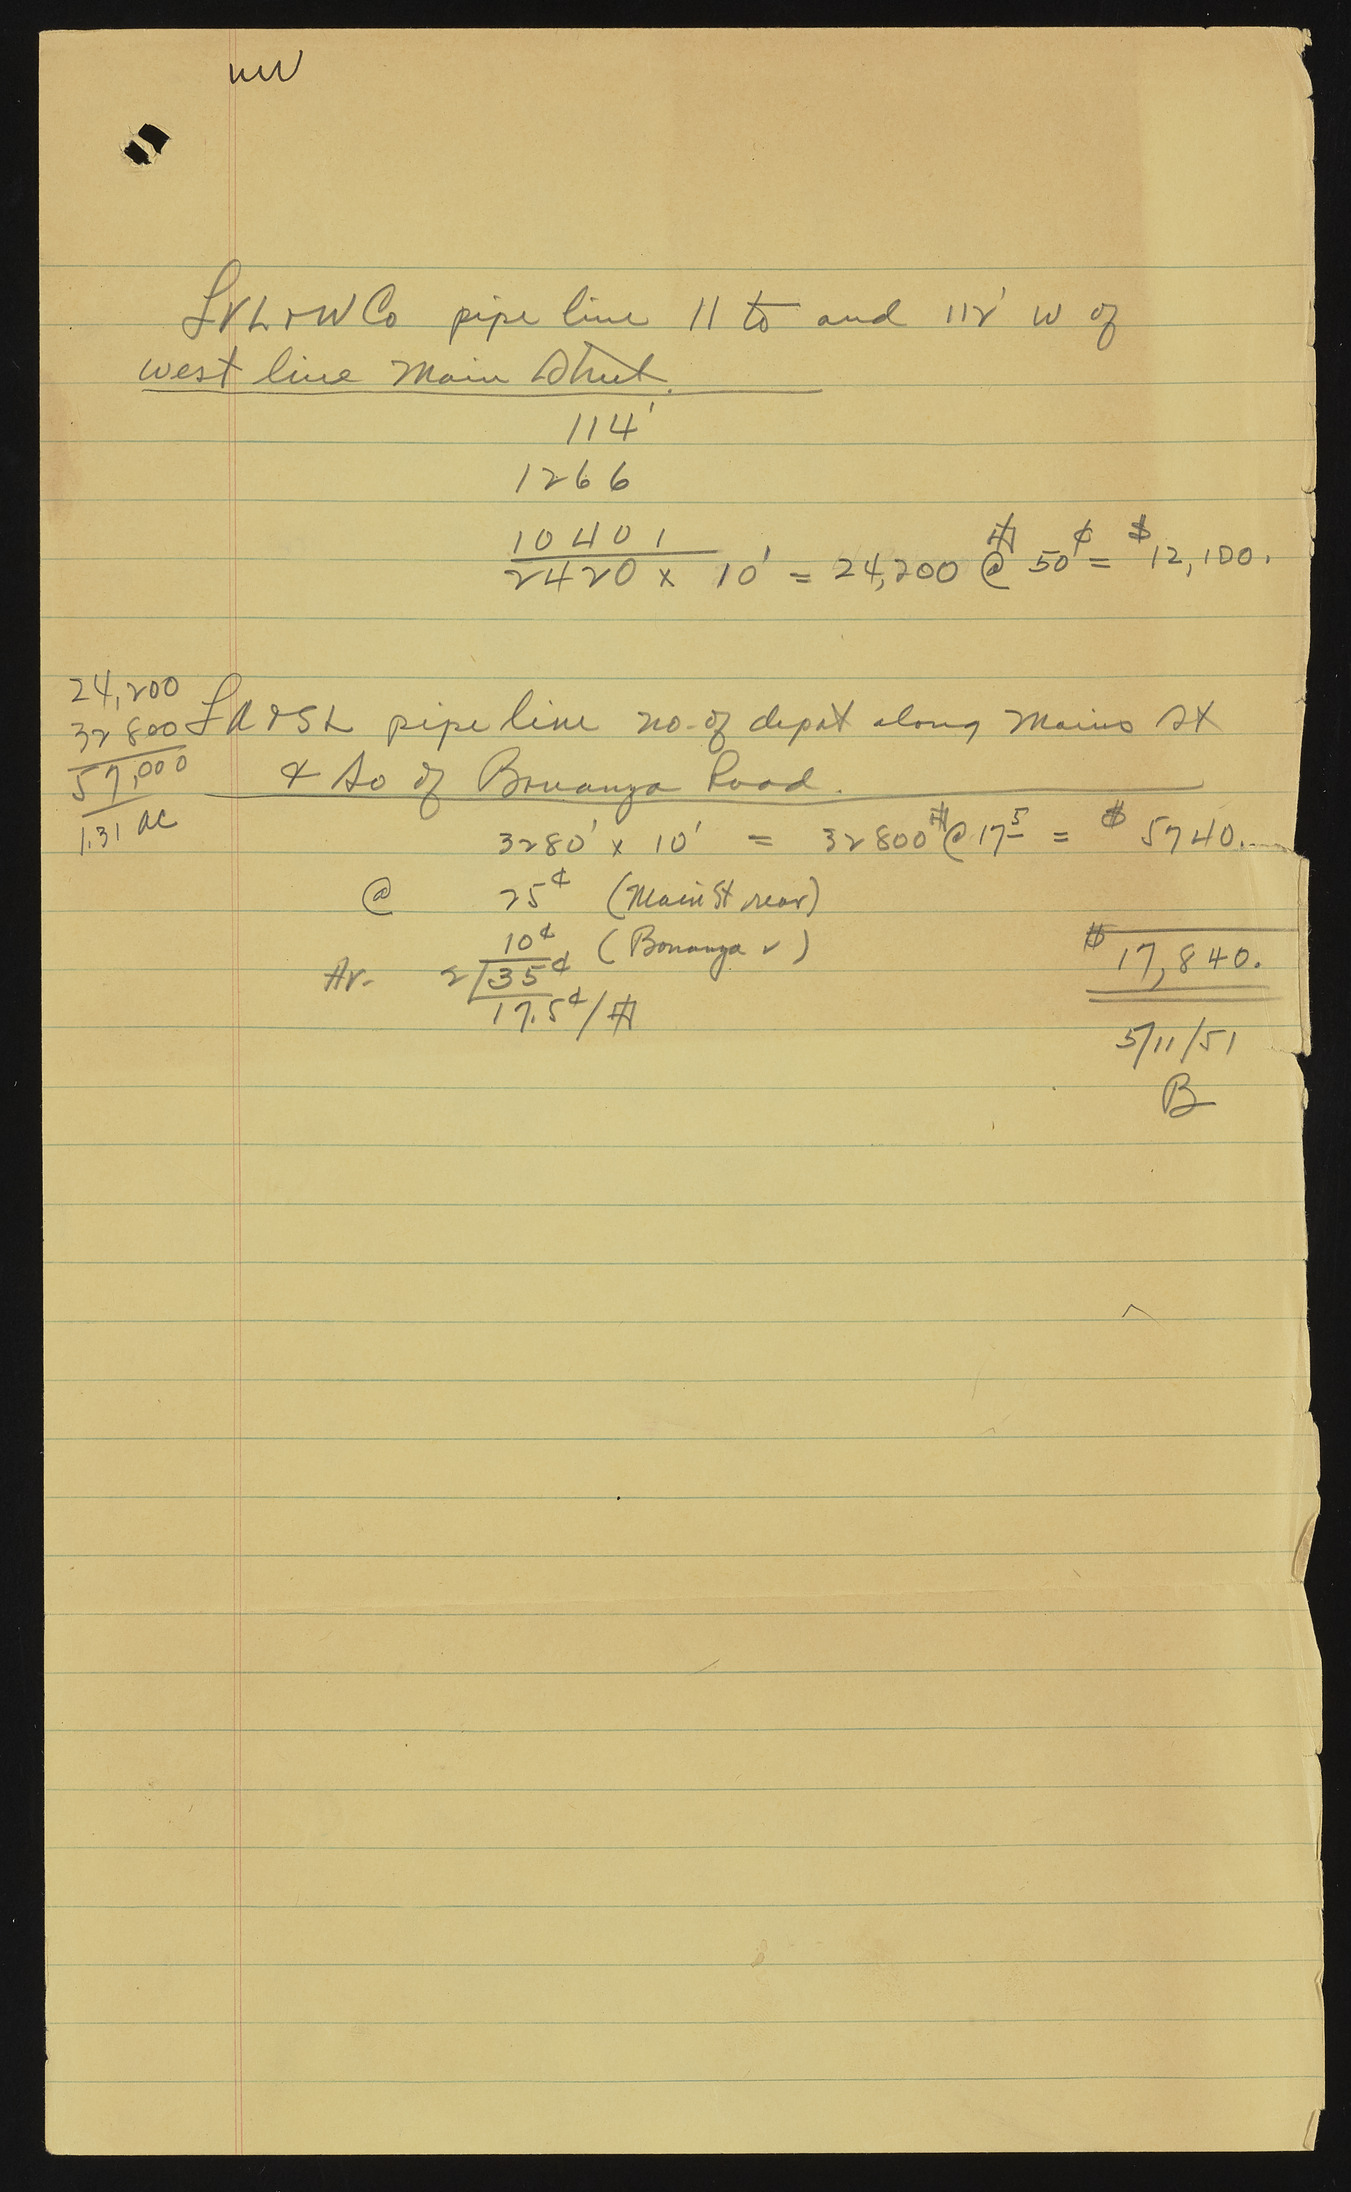 LVL+WCo pipe line 11 to and 112' W of
west line Main Street.
114'
1266
1040 1
2420 x 10' = 24,200 @ 50¢ = $12,100.
24,200
32800
57,000
1.31 AC
LA+SL pipe line no. of depot along Main St
& So of Bonanza Road.
3280' x 10' = 32800 @ 17 5 = $ 5740.
@ 25¢ (Main St near)
10¢ (Bonanza )
Av. 2 35¢
17.5¢/
$17,840.
5/11/51
B